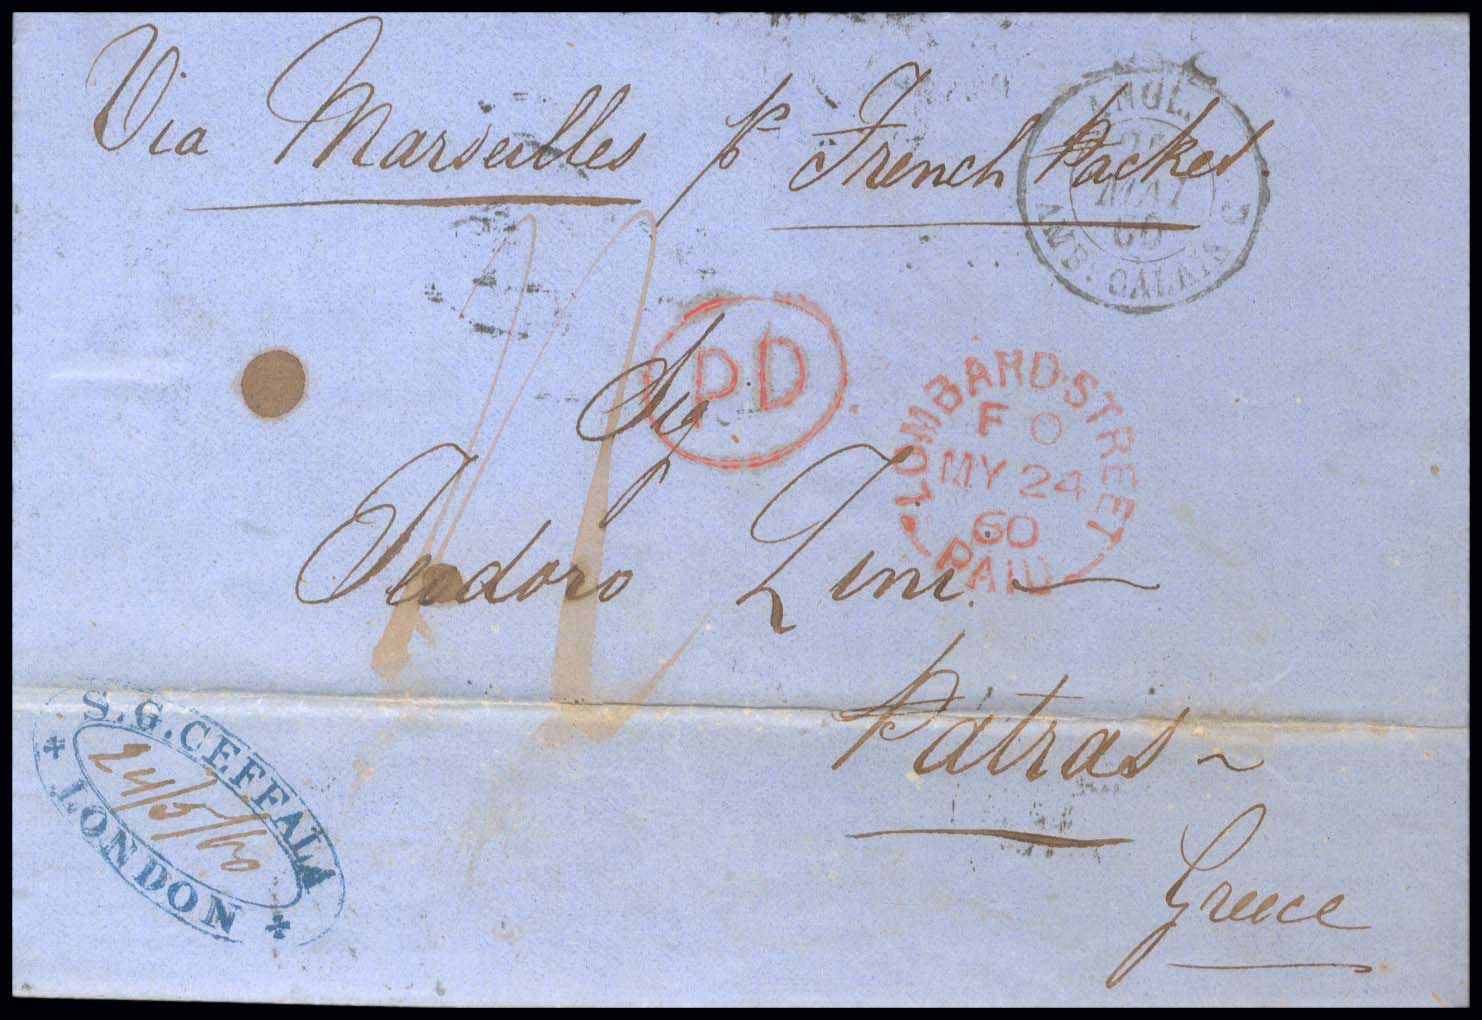 Via Marseilles pr French Packet.
ANGL.
MAI
60
AMB. CALAIS
PD
LOMBARD·STREET
F O
MY 24
60
PAID
Sig
Teodoro Zini
Patras
Greece
S.G.CEFFALA
24/5/60
LONDON